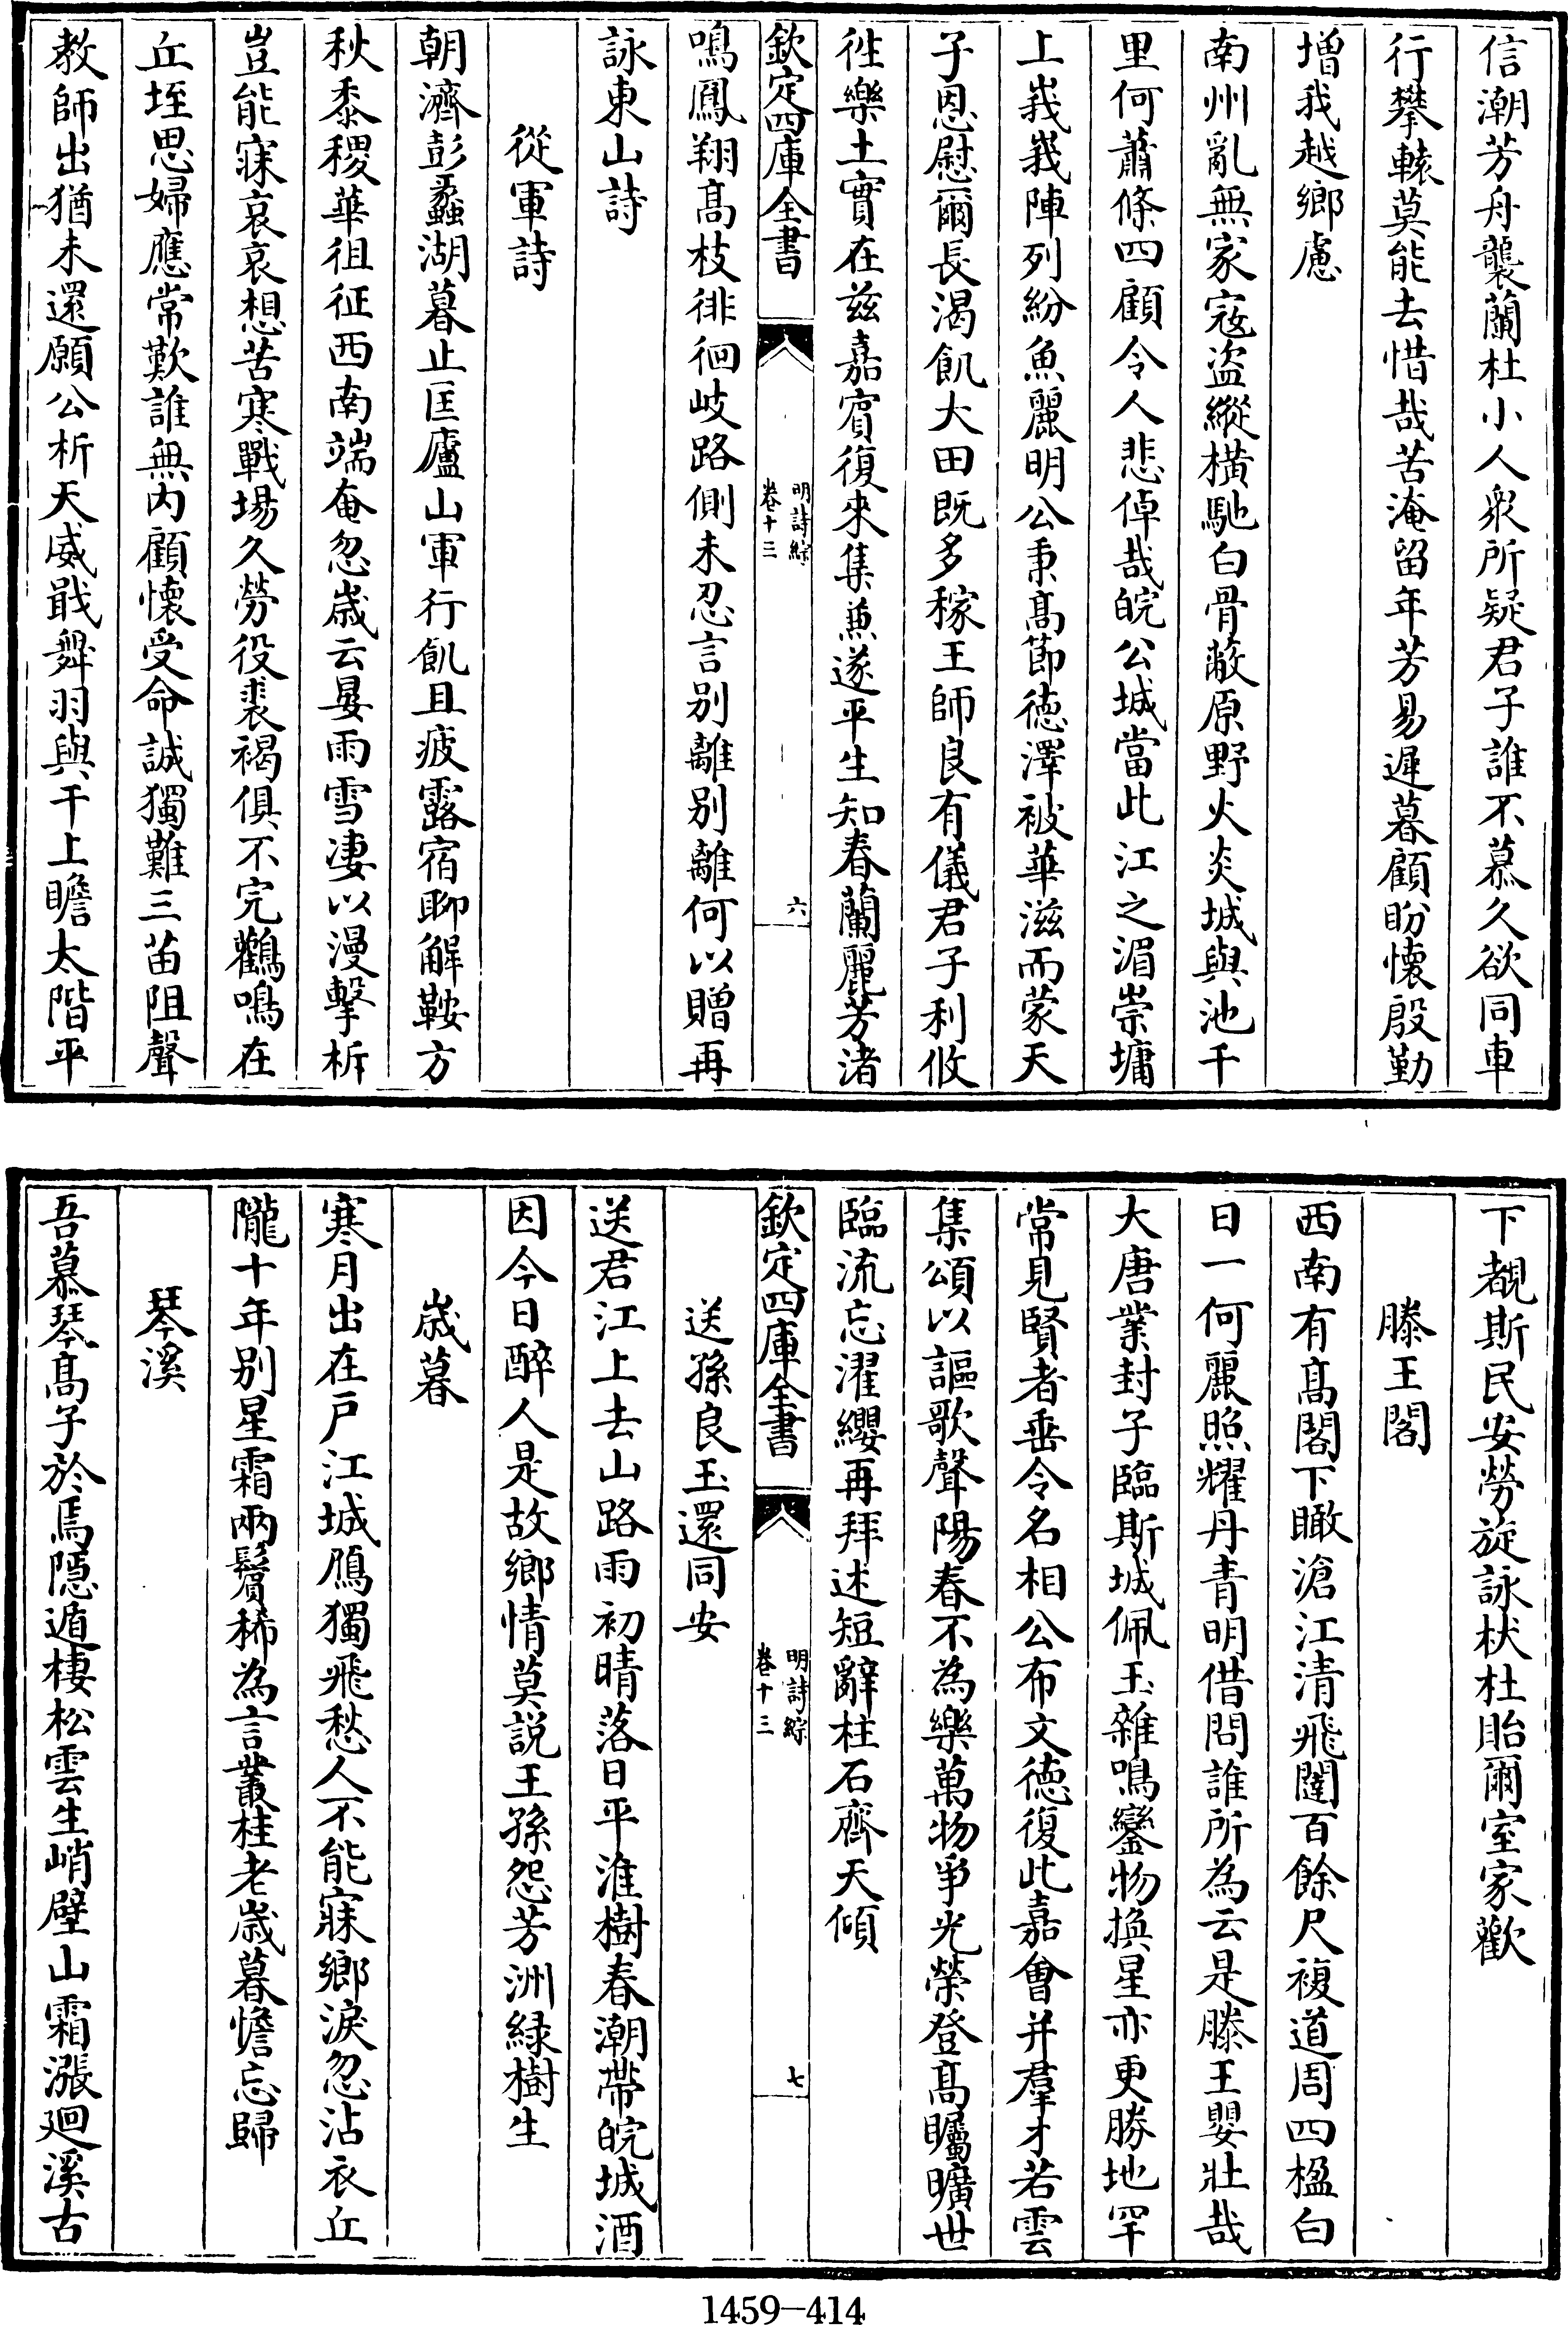 信潮芳舟襲蘭杜小人衆所疑君子誰不慕久欲同車
行攀轅莫能去惜哉苦淹留年芳易遲暮顧盼懷殷勤
增我越鄉慮
南州亂無家寇盜縱横馳白骨蔽原野火炎城與池千
里何蕭條四顧令人悲倬哉皖公城當此江之湄崇墉
上峩峩陣列紛魚麗明公秉髙節徳澤被華滋而蒙天
子恩慰爾長渴飢大田既多稼王師良有儀君子利攸
徃樂土實在兹嘉賓復來集兼遂平生知春蘭麗芳渚
欽定四庫全書
明詩綜
卷十三
六
鳴鳳翔髙枝徘徊岐路側未忍言别離别離何以贈再
詠東山詩
從軍詩
朝濟彭蠡湖暮止匡廬山軍行飢且疲露宿聊解鞍方
秋黍稷華徂征西南端奄忽嵗云晏雨雪凄以漫擊柝
豈能寐哀哀想苦寒戰場久勞役裘褐俱不完鸛鳴在
丘垤思婦應常歎誰無内顧懷受命誠獨難三苗阻聲
教師出猶未還願公析天威戢舞羽與干上瞻太階平
下覩斯民安勞旋詠杕杜貽爾室家歡
滕王閣
西南有髙閣下瞰滄江清飛闥百餘尺複道周四楹白
日一何麗照耀丹青明借問誰所為云是滕王嬰壯哉
大唐業封子臨斯城佩玉雜鳴鑾物換星亦更勝地罕
常見賢者垂令名相公布文徳復此嘉會并羣才若雲
集頌以謳歌聲陽春不為樂萬物爭光榮登髙矚曠世
臨流忘濯纓再拜述短辭柱石齊天傾
欽定四庫全書
明詩綜
卷十三
七
送孫良玉還同安
送君江上去山路雨初晴落日平淮樹春潮帶皖城酒
因今日醉人是故鄉情莫説王孫怨芳洲緑樹生
嵗暮
寒月出在戸江城鴈獨飛愁人不能寐鄉淚忽沾衣丘
隴十年别星霜兩鬢稀為言叢桂老嵗暮憺忘歸
琴溪
吾慕琴髙子於焉隱遁棲松雲生峭壁山霜漲迴溪古
1459—414